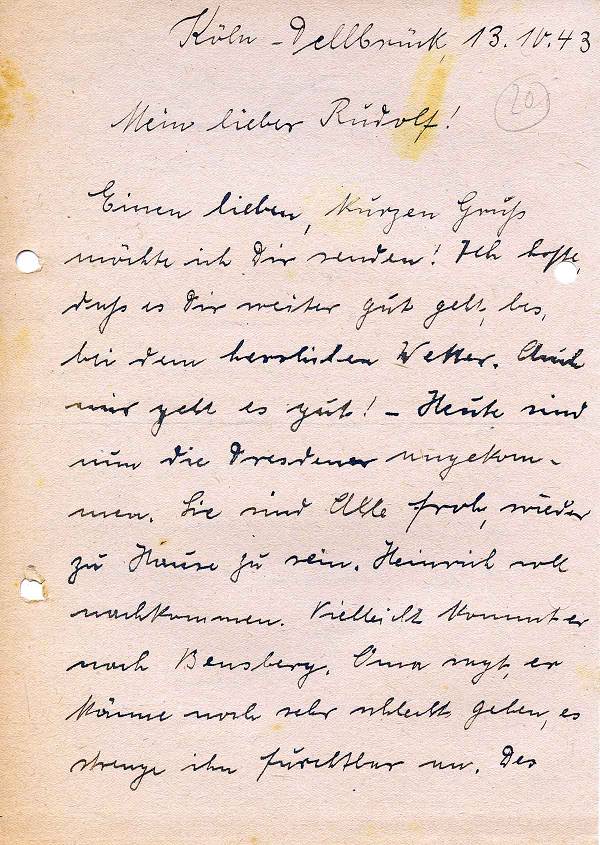 Köln-Dellbrück, 13.10.43
20
Mein lieber Rudolf!
Einen lieben, kurzen Gruß
möchte ich Dir senden! Ich hoffe,
daß es Dir weiter gut geht, bes.
bei dem herrlichen Wetter. Auch
mir geht es gut! - Heute sind
nun die Dresdener angekom-
men. Sie sind Alle froh, wieder
zu Hause zu sein. Heinrich soll
nachkommen. Vielleicht kommt er
nach Bensberg. Oma sagt, er
könne noch sehr schlecht gehen, es
strenge ihn furchtbar an. Des